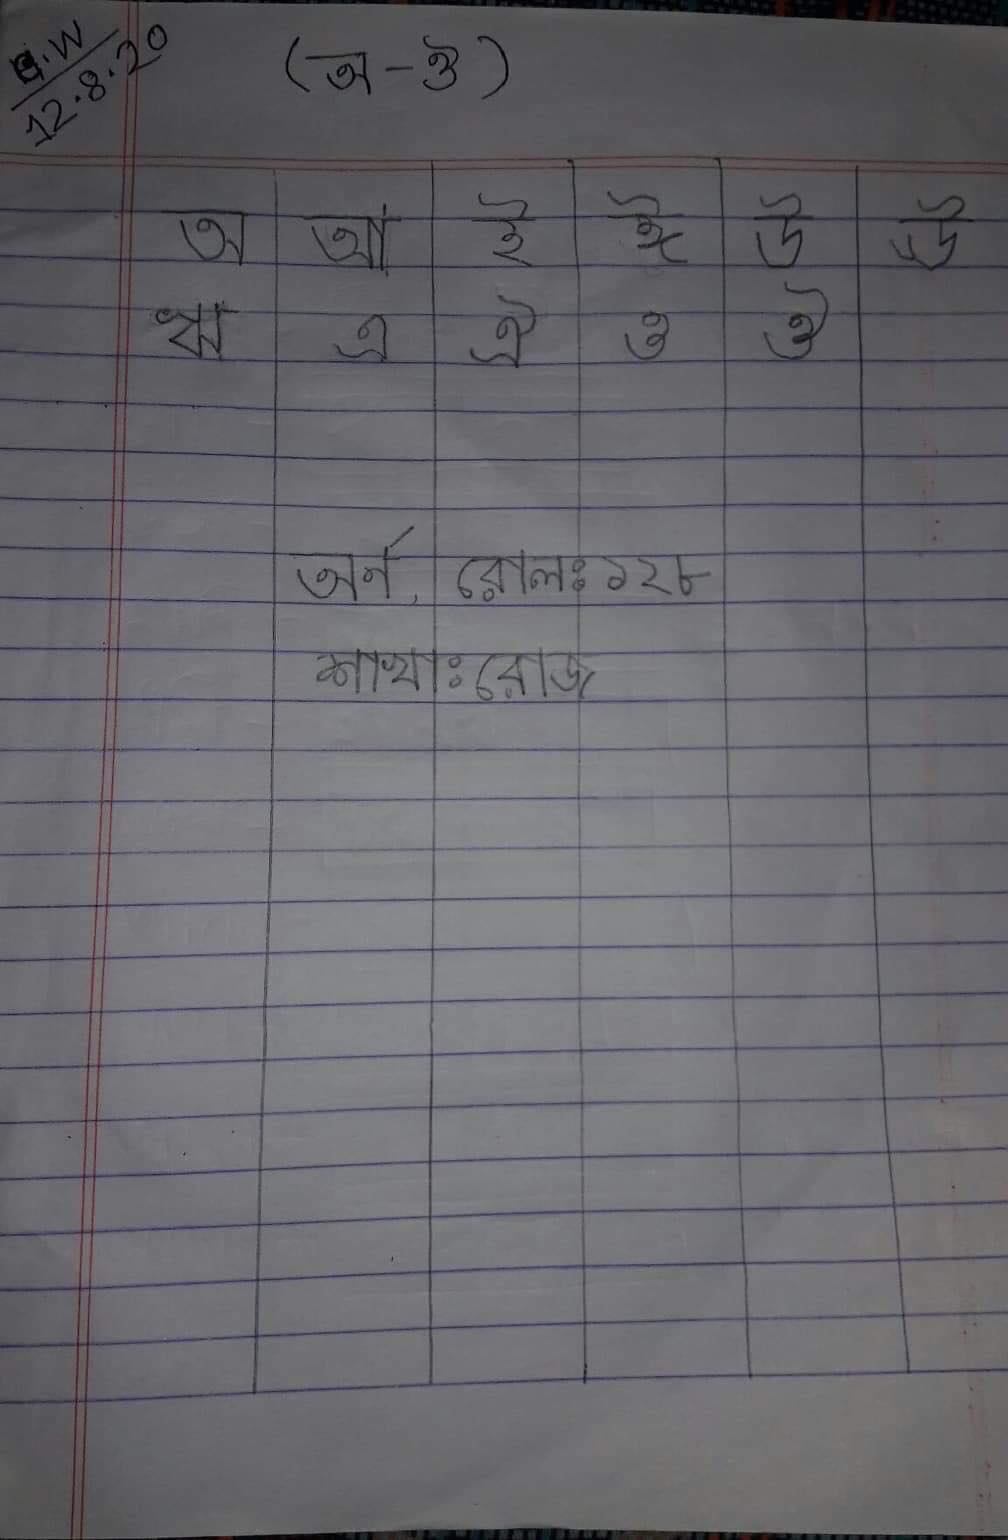 C.W
12.8.20
(অ - ঔ)
অ আ ই ঈ উ ঊ
ঋ এ ঐ ও ঔ
অর্ন, রোলঃ ১২৮
শাখাঃ রোজ